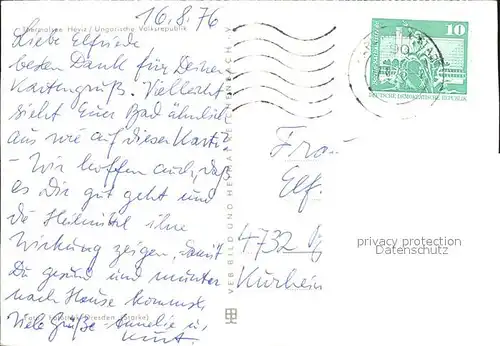 16.8.76
Thermalsee Héviz / Ungarische Volksrepublik
Liebe Elfriede
besten Dank für Deinen
Kartengruß. Vielleicht
sieht Euer Bad ähnlich
aus wie auf dieser Karte
- Wir hoffen auch, daß
es Dir gut geht und
die Heilmittel ihre
Wirkung zeigen, damit
Du gesund und munter
nach Hause kommst.
Viele Grüße Annelie u.
Kurt.
Dresden (Starke)
VEB BILD UND HEIMAT REICHENBACH
10
DEUTSCHE DEMOKRATISCHE REPUBLIK
Frau
Elf.
4732
Kurheim
privacy protection
Datenschutz